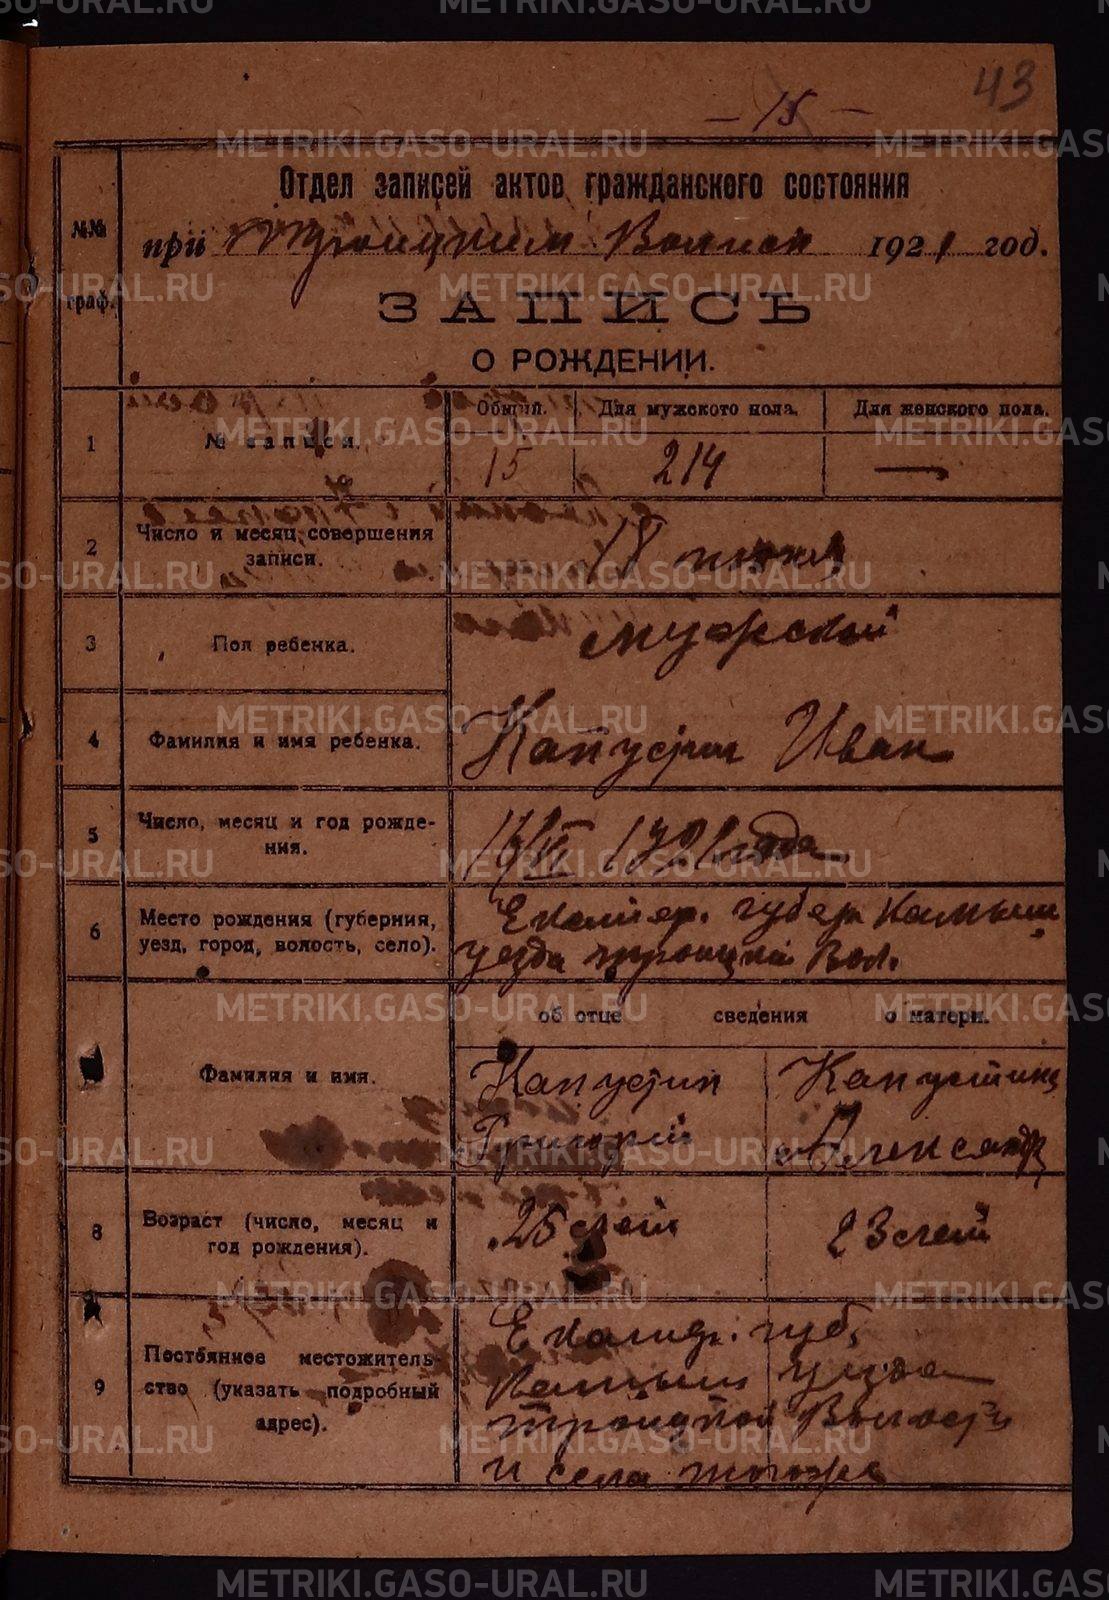 43
- 15 -
Отдел записей актов гражданского состояния
при Троицким Волисп 1921 год.
№№ граф.
ЗАПИСЬ
О РОЖДЕНИИ.
Общий. Для мужского пола. Для женского пола.
1 № записи. 15 214 —
2 Число и месяц совершения
записи. 18 июня
3 Пол ребенка. мужской
4 Фамилия и имя ребенка. Капустин Иван
5 Число, месяц и год рожде-
ния. 16/VI 1921 года
6 Место рождения (губерния,
уезд, город, волость, село).
Екатер. губер Камыш
уезда троицкой Вол.
об отце сведения о матери.
Фамилия и имя.
Капустин Капустина
Григорий Александр
8 Возраст (число, месяц и
год рождения).
25 лет 23 лет
9 Постоянное местожитель-
ство (указать подробный
адрес).
Екатер. губ.
Камыш уезда
троицкой Волости
и села тогоже
METRIKI.GASO-URAL.RU